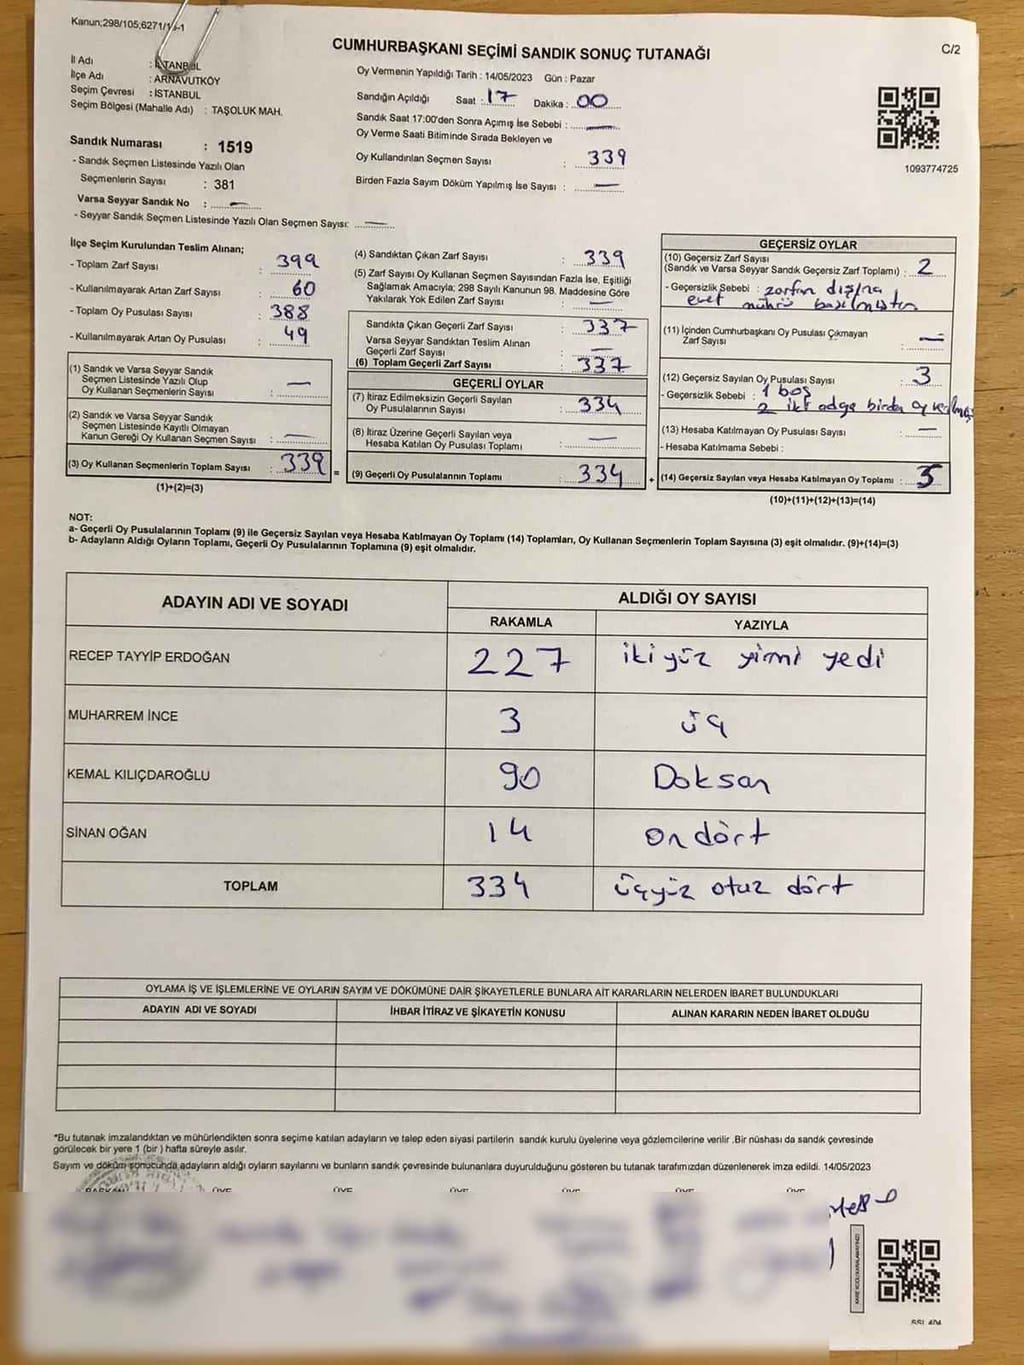 Kanun;298/105;6271/
CUMHURBAŞKANI SEÇİMİ SANDIK SONUÇ TUTANAĞI
C/2
İl Adı : İSTANBUL
İlçe Adı : ARNAVUTKÖY
Seçim Çevresi : İSTANBUL
Seçim Bölgesi (Mahalle Adı) : TAŞOLUK MAH.
Sandık Numarası : 1519
- Sandık Seçmen Listesinde Yazılı Olan
Seçmenlerin Sayısı : 381
Varsa Seyyar Sandık No : —
- Seyyar Sandık Seçmen Listesinde Yazılı Olan Seçmen Sayısı: —
Oy Vermenin Yapıldığı Tarih : 14/05/2023 Gün : Pazar
Sandığın Açıldığı Saat : 17 Dakika : 00
Sandık Saat 17:00'den Sonra Açımış İse Sebebi : —
Oy Verme Saati Bitiminde Sırada Bekleyen ve
Oy Kullandırılan Seçmen Sayısı : 339
Birden Fazla Sayım Döküm Yapılmış İse Sayısı : —
1093774725
İlçe Seçim Kurulundan Teslim Alınan;
- Toplam Zarf Sayısı : 399
- Kullanılmayarak Artan Zarf Sayısı : 60
- Toplam Oy Pusulası Sayısı : 388
- Kullanılmayarak Artan Oy Pusulası : 49
(1) Sandık ve Varsa Seyyar Sandık
Seçmen Listesinde Yazılı Olup
Oy Kullanan Seçmenlerin Sayısı : —
(2) Sandık ve Varsa Seyyar Sandık
Seçmen Listesinde Kayıtlı Olmayan
Kanun Gereği Oy Kullanan Seçmen Sayısı : —
(3) Oy Kullanan Seçmenlerin Toplam Sayısı : 339 =
(1)+(2)=(3)
(4) Sandıktan Çıkan Zarf Sayısı : 339
(5) Zarf Sayısı Oy Kullanan Seçmen Sayısından Fazla İse, Eşitliği
Sağlamak Amacıyla; 298 Sayılı Kanunun 98. Maddesine Göre
Yakılarak Yok Edilen Zarf Sayısı : —
Sandıkta Çıkan Geçerli Zarf Sayısı : 337
Varsa Seyyar Sandıktan Teslim Alınan
Geçerli Zarf Sayısı : —
(6) Toplam Geçerli Zarf Sayısı : 337
GEÇERLİ OYLAR
(7) İtiraz Edilmeksizin Geçerli Sayılan
Oy Pusulalarının Sayısı : 334
(8) İtiraz Üzerine Geçerli Sayılan veya
Hesaba Katılan Oy Pusulası Toplamı : —
(9) Geçerli Oy Pusulalarının Toplamı : 334 +
GEÇERSİZ OYLAR
(10) Geçersiz Zarf Sayısı
(Sandık ve Varsa Seyyar Sandık Geçersiz Zarf Toplamı) : 2
- Geçersizlik Sebebi : zarfın dışına
evet mührü basılmıştır
(11) İçinden Cumhurbaşkanı Oy Pusulası Çıkmayan
Zarf Sayısı : —
(12) Geçersiz Sayılan Oy Pusulası Sayısı : 3
- Geçersizlik Sebebi : 1 boş
2 iki adaya birden oy
(13) Hesaba Katılmayan Oy Pusulası Sayısı : —
- Hesaba Katılmama Sebebi :
(14) Geçersiz Sayılan veya Hesaba Katılmayan Oy Toplamı : 5
(10)+(11)+(12)+(13)=(14)
NOT:
a- Geçerli Oy Pusulalarının Toplamı (9) ile Geçersiz Sayılan veya Hesaba Katılmayan Oy Toplamı (14) Toplamları, Oy Kullanan Seçmenlerin Toplam Sayısına (3) eşit olmalıdır. (9)+(14)=(3)
b- Adayların Aldığı Oyların Toplamı, Geçerli Oy Pusulalarının Toplamına (9) eşit olmalıdır.
ADAYIN ADI VE SOYADI ALDIĞI OY SAYISI
RAKAMLA YAZIYLA
RECEP TAYYİP ERDOĞAN 227 iki yüz yirmi yedi
MUHARREM İNCE 3 üç
KEMAL KILIÇDAROĞLU 90 Doksan
SİNAN OĞAN 14 on dört
TOPLAM 334 üçyüz otuz dört
OYLAMA İŞ VE İŞLEMLERİNE VE OYLARIN SAYIM VE DÖKÜMÜNE DAİR ŞİKAYETLERLE BUNLARA AİT KARARLARIN NELERDEN İBARET BULUNDUKLARI
ADAYIN ADI VE SOYADI İHBAR İTİRAZ VE ŞİKAYETİN KONUSU ALINAN KARARIN NEDEN İBARET OLDUĞU
*Bu tutanak imzalandıktan ve mühürlendikten sonra seçime katılan adayların ve talep eden siyasi partilerin sandık kurulu üyelerine veya gözlemcilerine verilir .Bir nüshası da sandık çevresinde
görülecek bir yere 1 (bir ) hafta süreyle asılır.
Sayım ve döküm sonucunda adayların aldığı oyların sayılarını ve bunların sandık çevresinde bulunanlara duyurulduğunu gösteren bu tutanak tarafımızdan düzenlenerek imza edildi. 14/05/2023
BAŞKAN ÜYE ÜYE ÜYE ÜYE ÜYE ÜYE